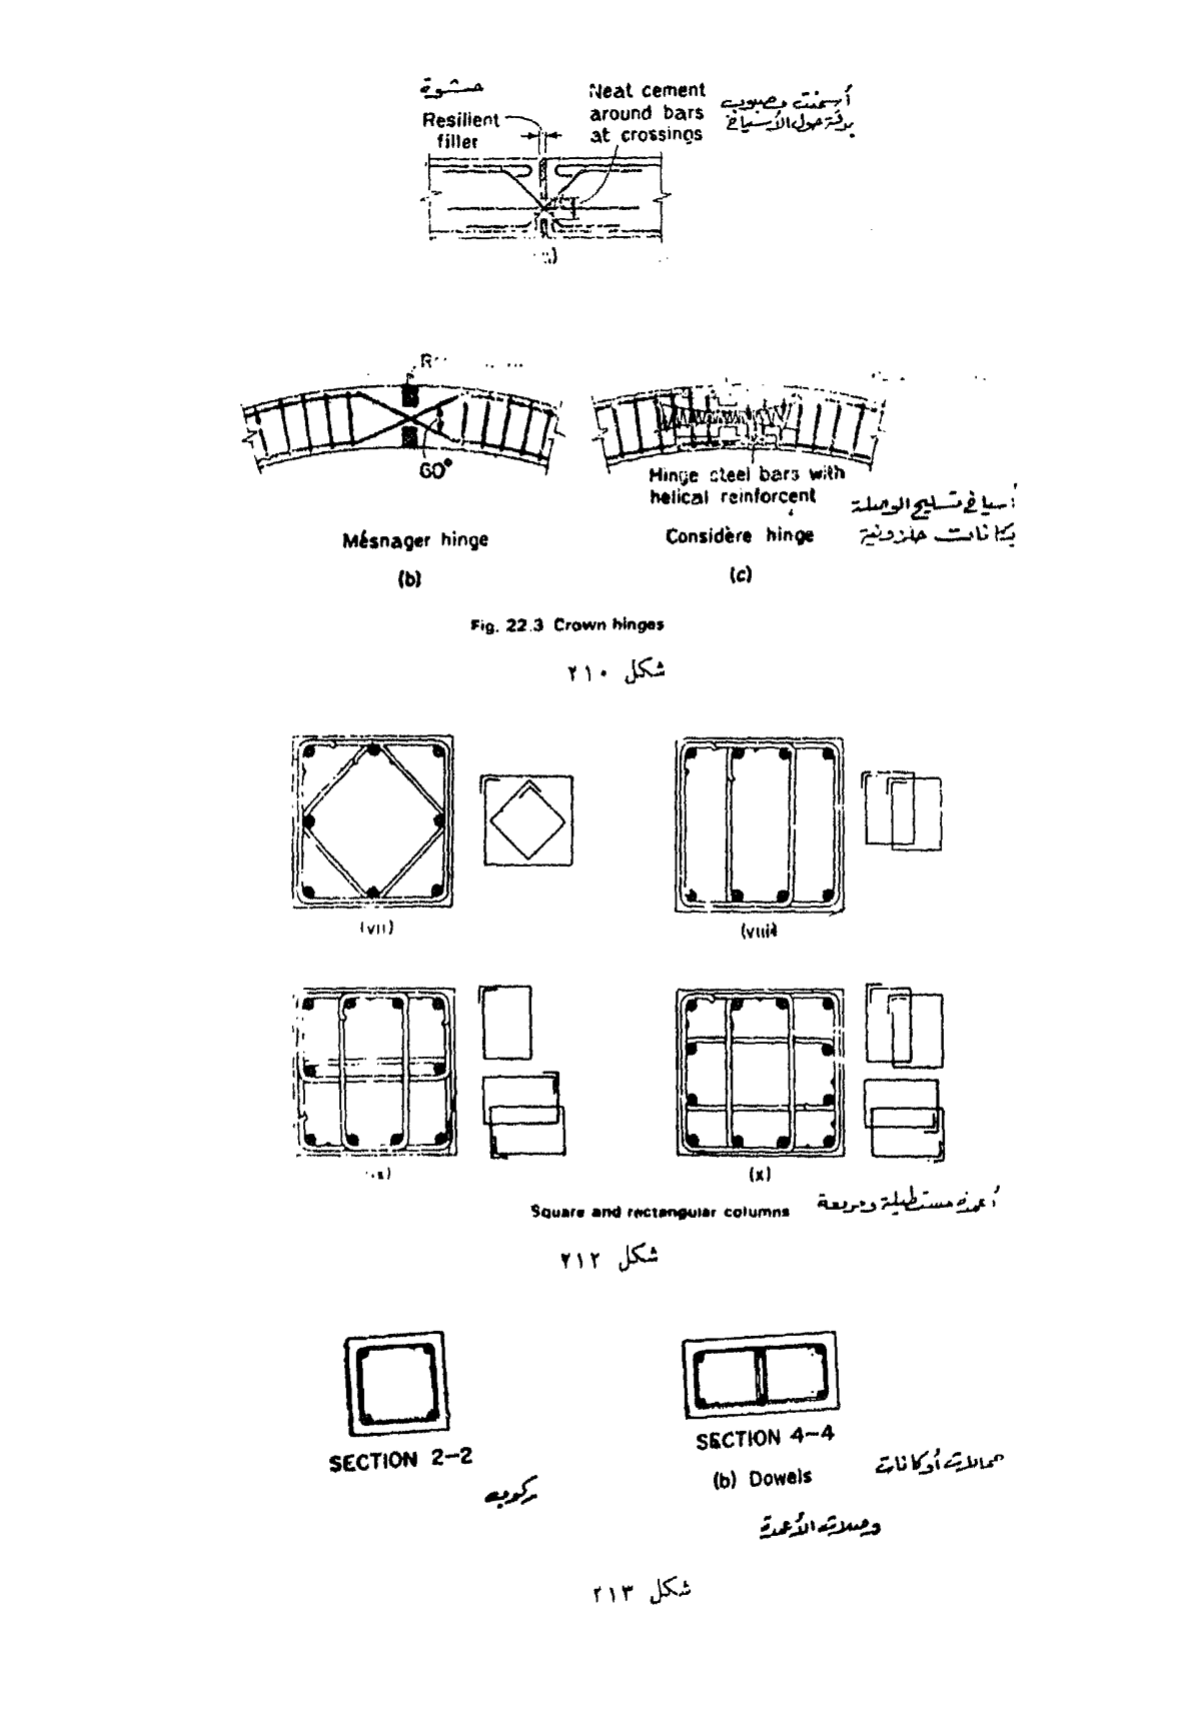 حشوة
Resilient
filler
Neat cement
around bars
at crossings
أسمنت مصبوب
بدقة حول الأسياخ
60°
Mésnager hinge
(b)
Hinge steel bars with
helical reinforcent
أسياخ تسليح الوصلة
بكانات حلزونية
Considère hinge
(c)
Fig. 22.3 Crown hinges
شكل ٢١٠
(vii)
(viii)
(x)
Square and rectangular columns
أعمدة مستطيلة ومربعة
شكل ٢١٢
SECTION 2-2
ركوب
SECTION 4-4
(b) Dowels
حمالات أو كانات
وصلات الأعمدة
شكل ٢١٣